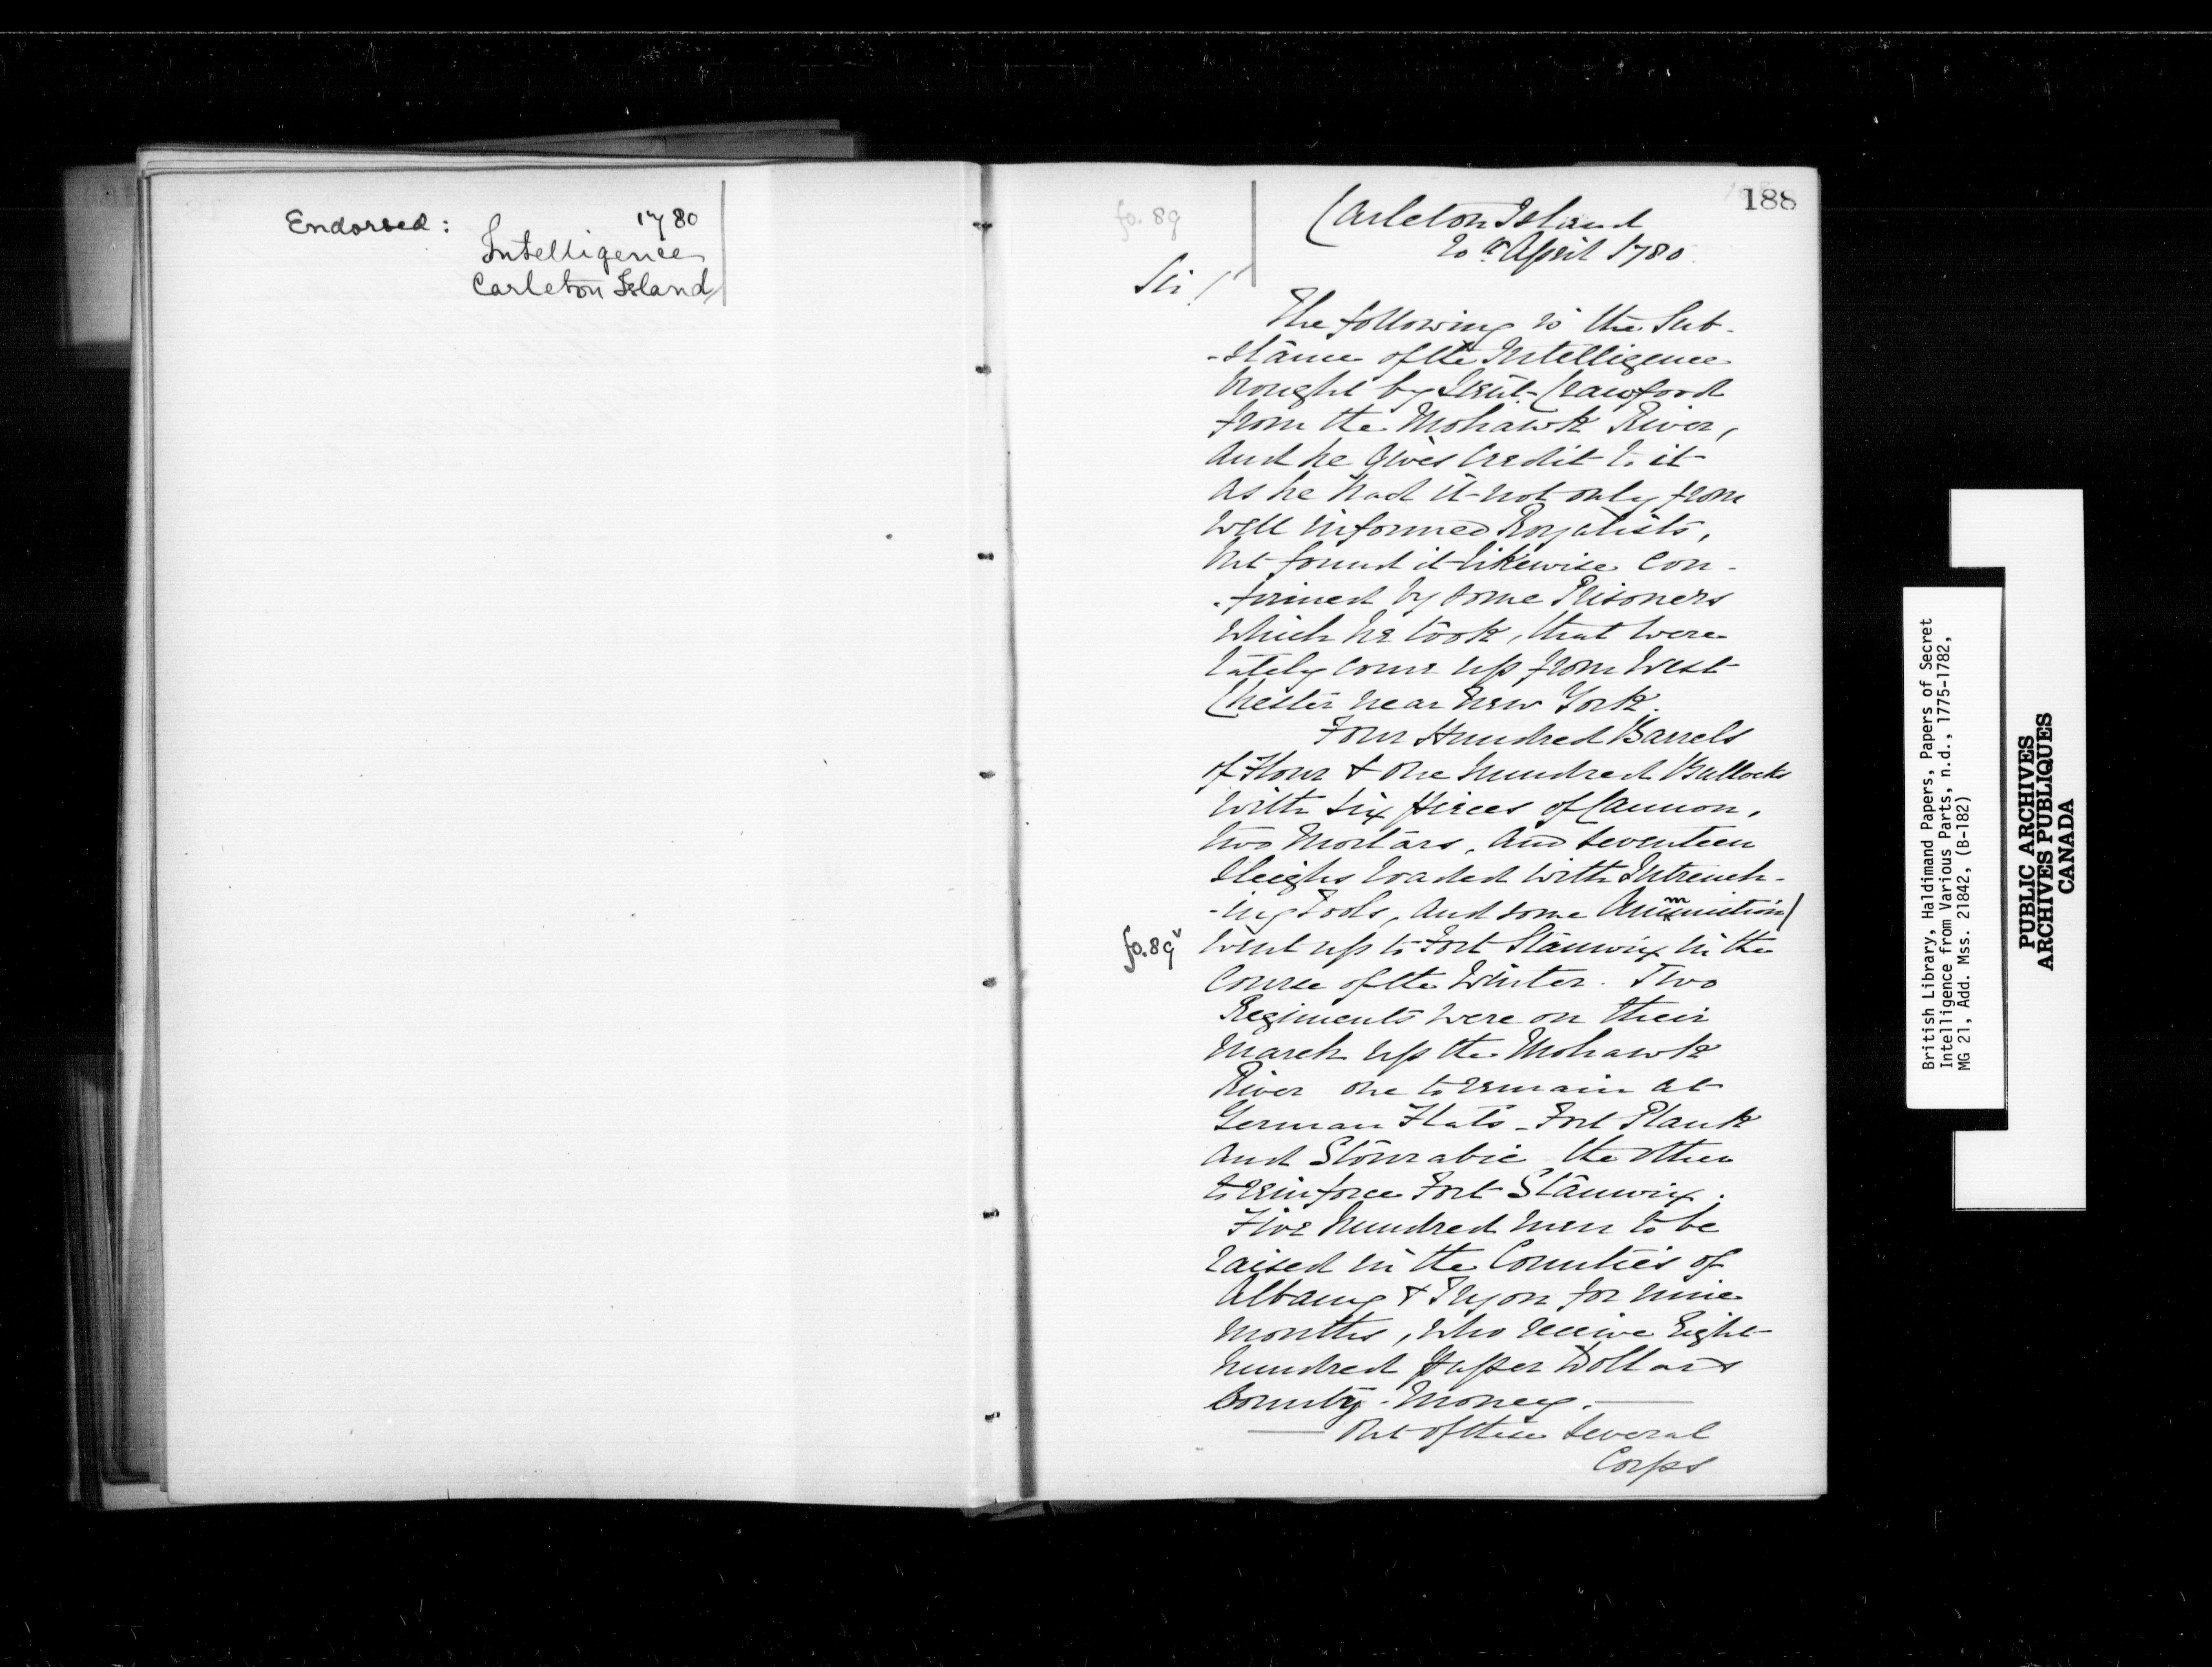 Endorsed: 1780
Intelligence
Carleton Island
188
fo. 89
Carleton Island
20th April 1780.
Sir/
The following is the Sub-
-stance of the Intelligence
brought by Lieut- Crawford
from the Mohawk River,
and he gives Credit to it
as he had it not only from
well informed Royalists,
but found it likewise Con-
-firmed by some Prisoners
which he took, that were
lately come up from West
Chester near New York.
Four Hundred Barrels
of Flour & one hundred Bullocks
with six pieces of Cannon,
two Mortars, and seventeen
Sleighs loaded with Intrench-
-ing Tools, and some Ammunition/
fo. 89v
went up to Fort Stanwix in the
Course of the Winter. Two
Regiments were on their
March up the Mohawk
River one to remain at
German Flats - Fort Plank
and Stonrabie the other
to reinforce Fort Stanwix.
Five hundred men to be
raised in the Counties of
Albany & Tryon for nine
months, who receive Eight
hundred paper Dollars
bounty-money.
But of these several
Corps
British Library, Haldimand Papers, Papers of Secret
Intelligence from Various Parts, n.d., 1775-1782,
MG 21, Add. Mss. 21842, (B-182)
PUBLIC ARCHIVES
ARCHIVES PUBLIQUES
CANADA